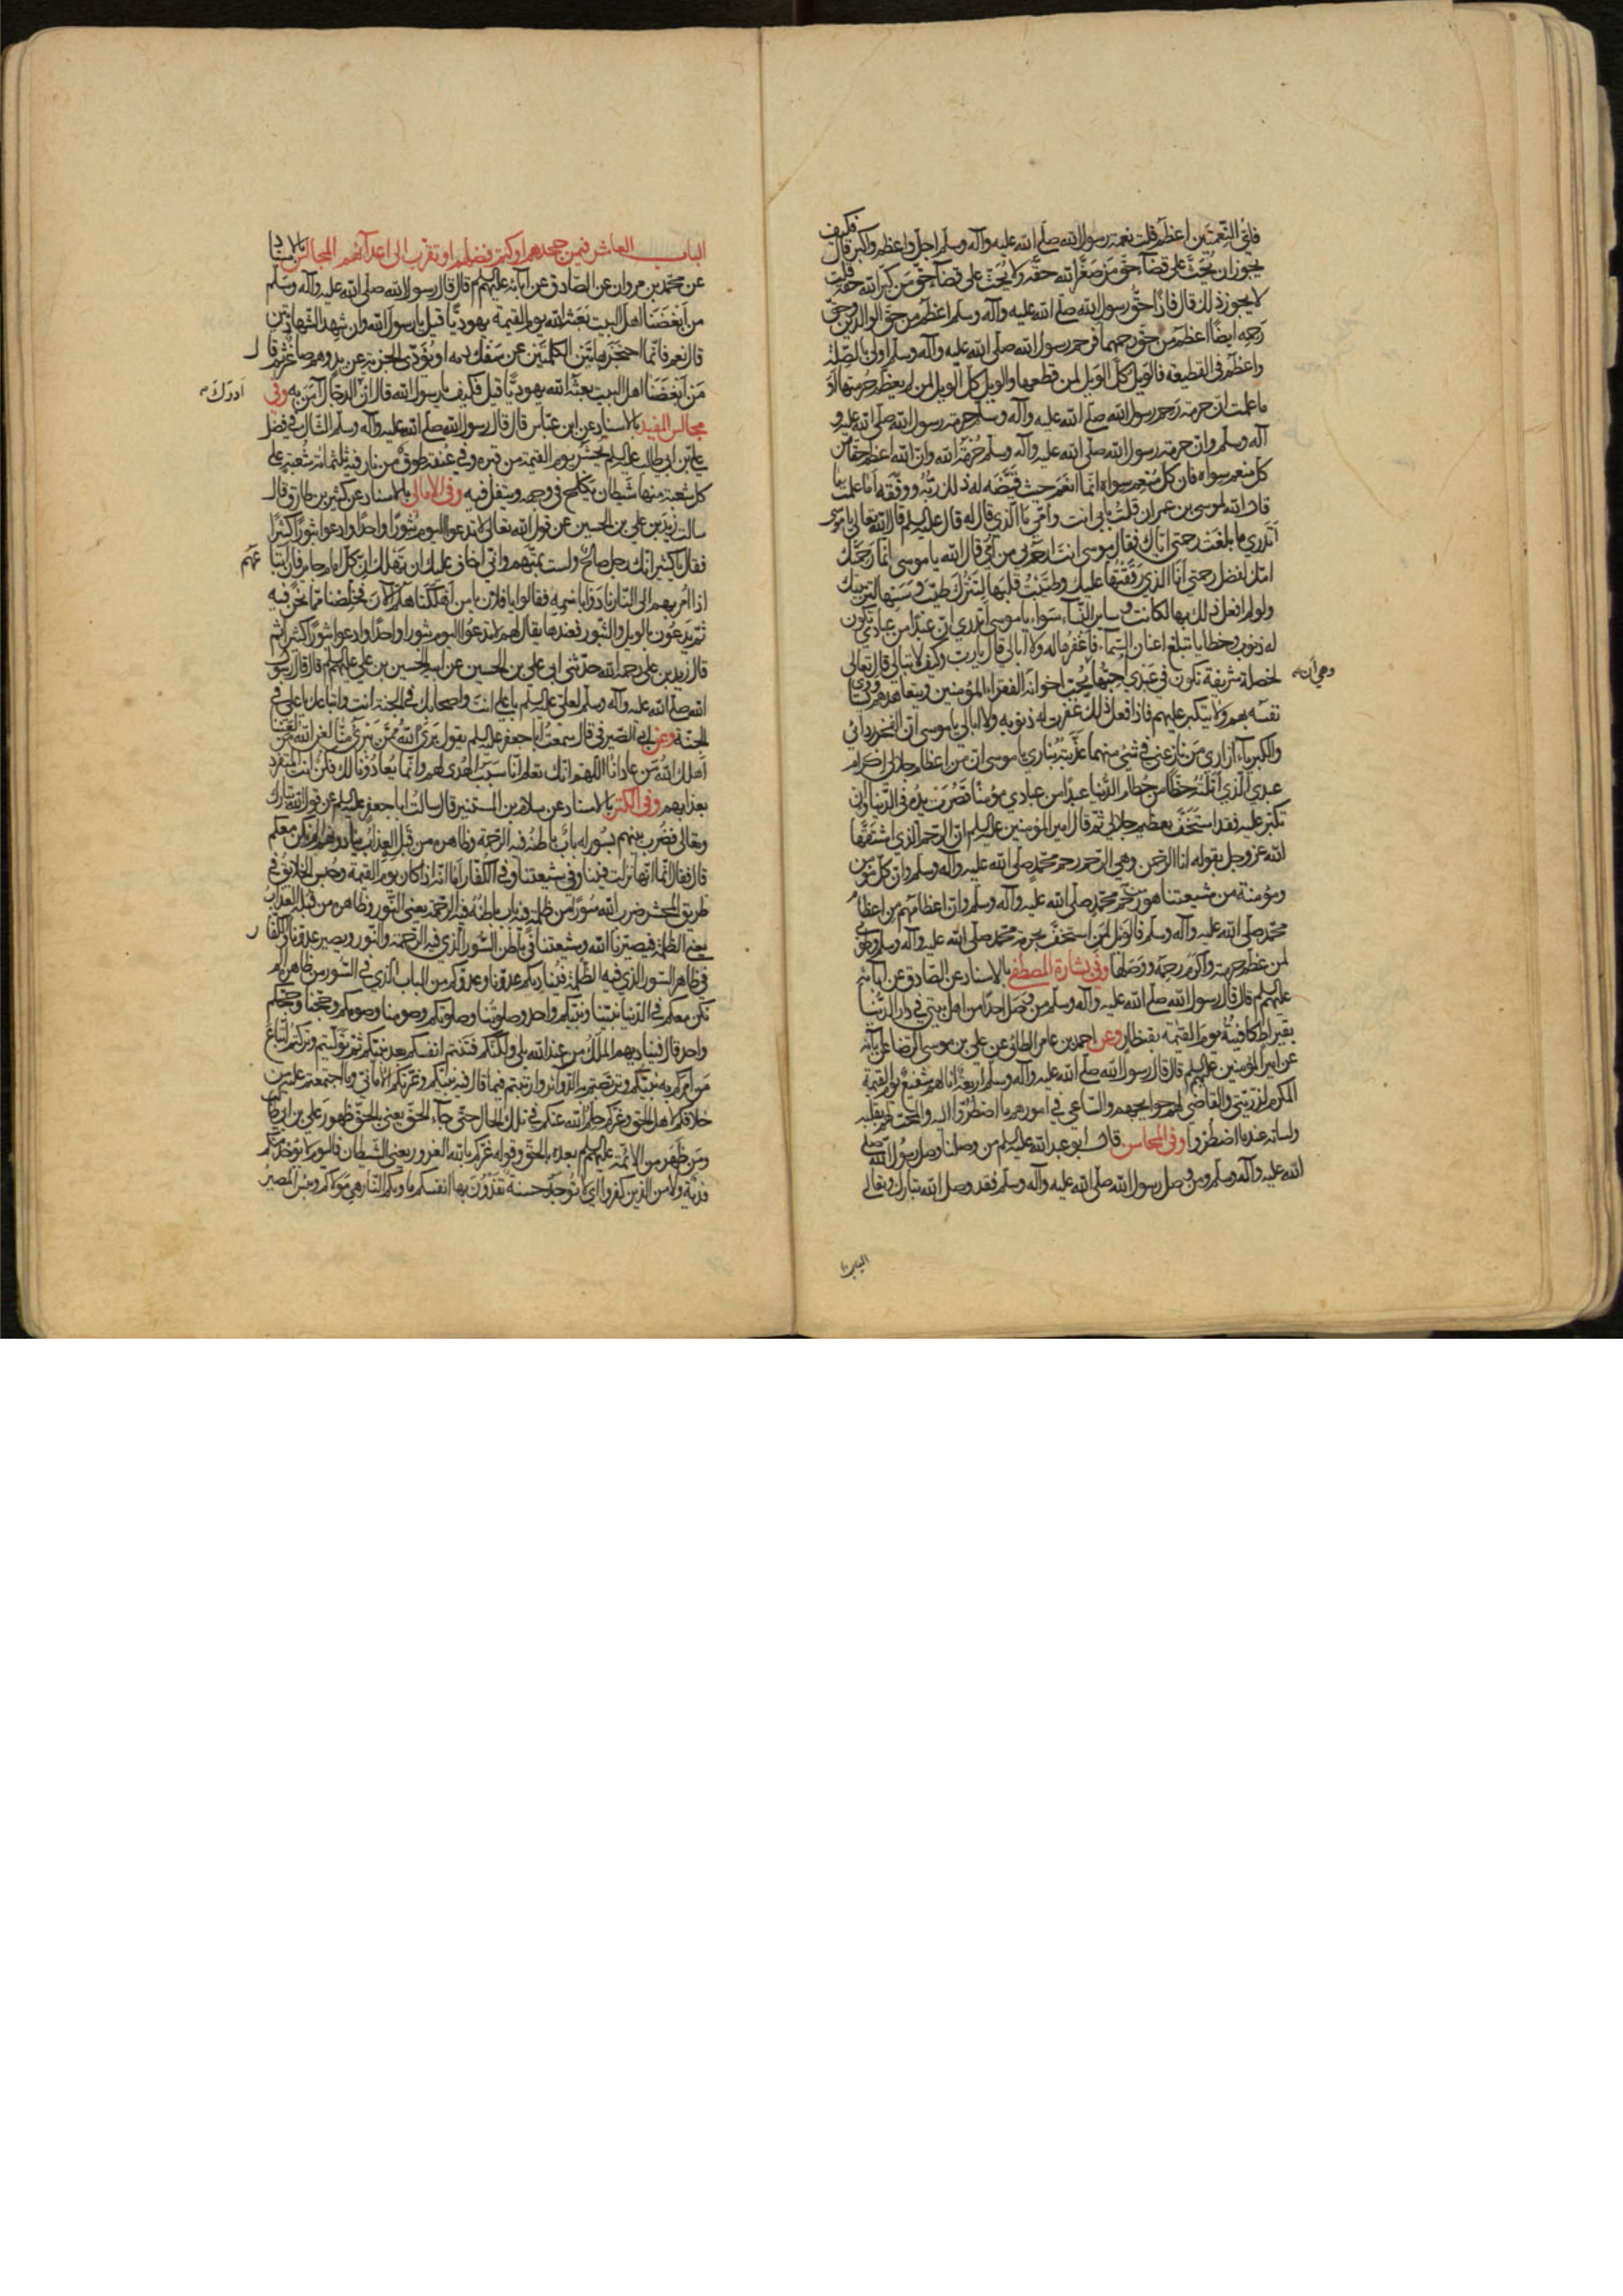 فايّ النعمتين اعظم قلت نعمة رسول الله صلّى الله عليه وآله وسلم اجلّ واعظم واكبر قال فكيف
يجوز ان يحثّ على قضآء حق من صغّر الله حقّه ولا يحثّ على قضآء حق من كبّر الله حقه قلت
لا يجوز ذلك قال فاذًا حقّ رسول الله صلّى الله عليه وآله وسلم اعظم من حق الوالدين وحقّ
رحمه ايضًا اعظم من حق رحمهما فرحم رسول الله صلّى الله عليه وآله وسلم اولى بالصّلة
واعظم في القطيعة فالويل كلّ الويل لمن قطعها والويل كلّ الويل لمن لم يعظّم حرمتها أو
ما علمت انّ حرمة رحم رسول الله صلّى الله عليه وآله وسلم حرمة رسول الله صلّى الله عليه و
آله وسلم وان حرمة رسول الله صلّى الله عليه وآله وسلم حرمة الله وان الله اعظم حقا من
كلّ منعم سواه فان كلّ منعم سواه انّما انعم حيث قيّضه له ذلك ربّه ووفّقه اما علمت ما
قال الله لموسى بن عمران قلت بابي انت وامّي ما الّذي قال له قال عليه السلم قال الله تعالى يا موسى
اتدري ما بلغت رحمتي اياك فقال موسى انت ارحم بي من امّي قال الله يا موسى انما رحمتك
امّك لفضل رحمتي انا الذي رقّقتها عليك وطيّبت قلبها لتترك طيب وسنها لتربيتك
ولو لم افعل ذلك بها لكانت وساير النسآء سواء يا موسى اتدري انّ عبدًا من عبادي تكون
له ذنوب وخطايا تبلغ اعنان السّمآء فاغفرها له ولا ابالي قال يا ربّ وكيف لا تبالي قال تعالى
لخصلة شريفة تكون في عبدي احبّها يحبّ اخوانه الفقراء المؤمنين ويتعاهدهم ويساوي
وهي ان
نفسه بهم ولا يتكبر عليهم فاذا فعل ذلك غفرت له ذنوبه ولا ابالي يا موسى ان الفخر ردائي
والكبرياء ازاري من نازعني في شئ منهما عذّبته بناري يا موسى ان من اعظام جلالي اكرام
عبدي الّذي انلته حظّا من حطام الدّنيا عبدًا من عبادي مؤمنا قصرت يده في الدّنيا وان
تكبّر عليه فقد استخفّ بعظيم جلالي ثم قال امير المؤمنين عليه السلم ان الرحم الذي اشتقّها
الله عز وجل بقوله انا الرحمن وهي الرحم رحم محمّد صلّى الله عليه وآله وسلم وان كل مؤمن
ومؤمنة من شيعتنا هو من رحم محمّد صلّى الله عليه وآله وسلم وان اعظامهم من اعظام
محمّد صلّى الله عليه وآله وسلم فالويل لمن استخفّ بحرمة محمّد صلّى الله عليه وآله وسلم وطوبى
لمن عظّم حرمته واكرم رحمه ووصلها وفي بشارة المصطفى بالاسناد عن الصّادق عن آبائه
عليهم السلم قال قال رسول الله صلّى الله عليه وآله وسلم من وصل احدًا من اهل بيتي في دار الدّنيا
بقيراط كافيته يوم القيمة بقنطار وعن احمد بن عامر الطائي عن علي بن موسى الرضا عن آبائه
عن امير المؤمنين عليهم السلم قال قال رسول الله صلّى الله عليه وآله وسلم اربعة انا لهم شفيع يوم القيمة
المكرم لذرّيتي والقاضي لهم حوايجهم والساعي في امورهم ما اضطرّوا اليه والمحب لهم بقلبه
ولسانه عند ما اضطرّوا وفي المحاسن قال ابو عبد الله عليه السلم من وصلنا وصل رسول الله صلّى
الله عليه وآله وسلم ومن وصل رسول الله صلّى الله عليه وآله وسلم فقد وصل الله تبارك وتعالى
الباب
الباب العاشر فيمن جحدهم او كتم فضلهم او تقرب الى اعدآئهم المجالس بالاسناد
عن محمّد بن مروان عن الصّادق عن آبائه عليهم السلم قال قال رسول الله صلّى الله عليه وآله وسلم
من ابغضنا اهل البيت بعثه الله يوم القيمة يهوديّا قيل يا رسول الله وان شهد الشهادتين
قال نعم فانّما احتجز بهاتين الكلمتين عن سفك دمه او يؤدّي الجزية عن يد وهم صاغر ثم قال
من ابغضنا اهل البيت بعثه الله يهوديّا قيل فكيف يا رسول الله قال ان الدجال آمن به وفي
ادرك
مجالس المفيد بالاسناد عن ابن عبّاس قال قال رسول الله صلّى الله عليه وآله وسلم الشاكّ في فضل
علي بن ابي طالب عليه السلم يحشر يوم القيمة من قبره وفي عنقه طوق من نار فيه ثلثمائة شعبة على
كل شعبة منها شيطان يكلح في وجهه ويتفل فيه وفي الامالي بالاسناد عن كثير بن طارق قال
سالت زيد بن علي بن الحسين عن قول الله تعالى لا تدعوا اليوم ثبورا واحدا وادعوا ثبورا كثيرا
فقال يا كثير انك رجل صالح ولست بمتّهم واني اخاف عليك ان تهلك ان كلّ امام جائر فان اتباعهم
اذا امر بهم الى النّار نادوا باسمه فقالوا يا فلان يا من اهلكنا هلم الآن فخلّصنا ممّا نحن فيه
ثم يدعون بالويل والثبور فعندها يقال لهم لا تدعوا اليوم ثبورا واحدا وادعوا ثبورا كثيرا ثم
قال زيد بن علي رحمه الله حدثني ابي علي بن الحسين عن ابيه الحسين بن علي عليهم السلم قال قال رسول
الله صلّى الله عليه وآله وسلم لعلي عليه السلم يا علي انت واصحابك في الجنة انت واتباعك يا علي في
الجنّة وعن ابي الصيرفي قال سمعت ابا جعفر عليه السلم يقول برئ الله ممّن تبرّئ منّا لعن الله من لعننا
اهلك الله من عادانا اللهم انك تعلم انا سبب الهدى لهم وانّما يعادونا لك فكن انت المتفرد
بعذابهم وفي الكنز بالاسناد عن سلام بن المستنير قال سالت ابا جعفر عليه السلم عن قول الله تبارك
وتعالى فضرب بينهم بسور له باب باطنه فيه الرحمة وظاهره من قبله العذاب ينادونهم الم نكن معكم
قال فقال انّما انها نزلت فينا وفي شيعتنا وفي الكفّار اما انه اذا كان يوم القيمة وحبس الخلائق في
طريق المحشر ضرب الله سورا من ظلمة فيه باب باطنه فيه الرحمة يعني النّور وظاهره من قبله العذاب
يعني الظلمة فيصيّرنا الله وشيعتنا في باطن السّور الّذي فيه الرحمة والنّور ويصير عدوّنا والكفار
في ظاهر السّور الذي فيه الظلمة فيناديكم عدوّنا وعدوّكم من الباب الّذي في السّور من ظاهره الم
نكن معكم في الدّنيا نبيّنا ونبيّكم واحد وصلوتنا وصلوتكم وصومنا وصومكم وحجّنا وحجّكم
واحد قال فيناديهم الملك من عند الله بلى ولكنّكم فتنتم انفسكم بعد نبيّكم ثم تولّيتم وتركتم اتباع
من امركم به نبيّكم وتربّصتم به الدّوآئر وارتبتم فيما قال فيه نبيّكم وغرّتكم الاماني وما اجتمعتم عليه من
خلافكم لاهل الحق وغرّكم حلم الله عنكم في تلك الحال حتى جآء الحق يعني بالحقّ ظهور علي بن ابي طالب
ومن ظهر من الائمّة عليهم السلم بعده بالحق وقوله غرّكم بالله الغرور يعني الشيطان فاليوم لا يؤخذ منكم
فدية ولا من الذين كفروا اي لا توجد حسنة تفدون بها انفسكم مأويكم النّار هي موليكم وبئس المصير